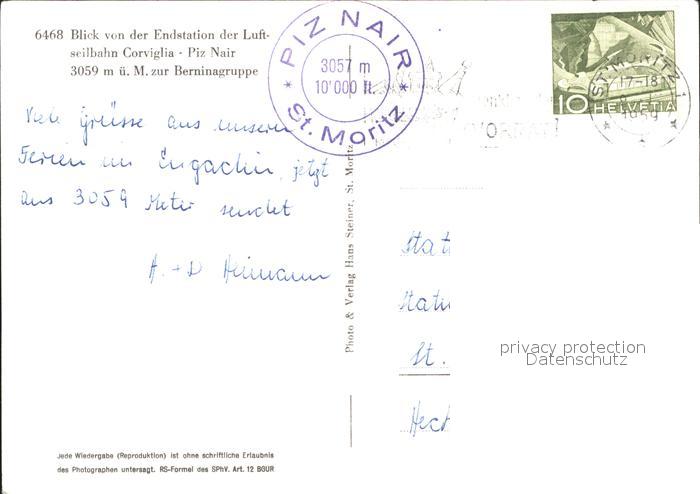 6468 Blick von der Endstation der Luft-
seilbahn Corviglia - Piz Nair
3059 m ü. M. zur Berninagruppe
PIZ NAIR
3057 m
10'000 ft.
St. Moritz
10 HELVETIA
ST. MORITZ 1
17-18
1959
Viele Grüsse aus unseren
Ferien im Engadin, jetzt
aus 3059 Meter sendet
A. + D Heimann
Photo & Verlag Hans Steiner, St. Moritz
Stat
Stat
St.
Hech
privacy protection
Datenschutz
Jede Wiedergabe (Reproduktion) ist ohne schriftliche Erlaubnis
des Photographen untersagt. RS-Formel des SPhV. Art. 12 BGUR